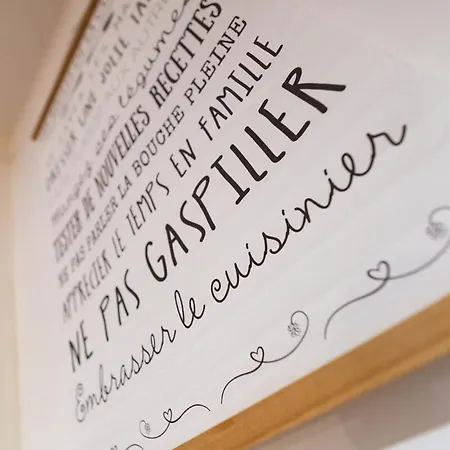 DRESSER UNE JOLIE TA
manger des légumes
TESTER DE NOUVELLES RECETTES
NE PAS PARLER LA BOUCHE PLEINE
APPRÉCIER LE TEMPS EN FAMILLE
NE PAS GASPILLER
Embrasser le cuisinier